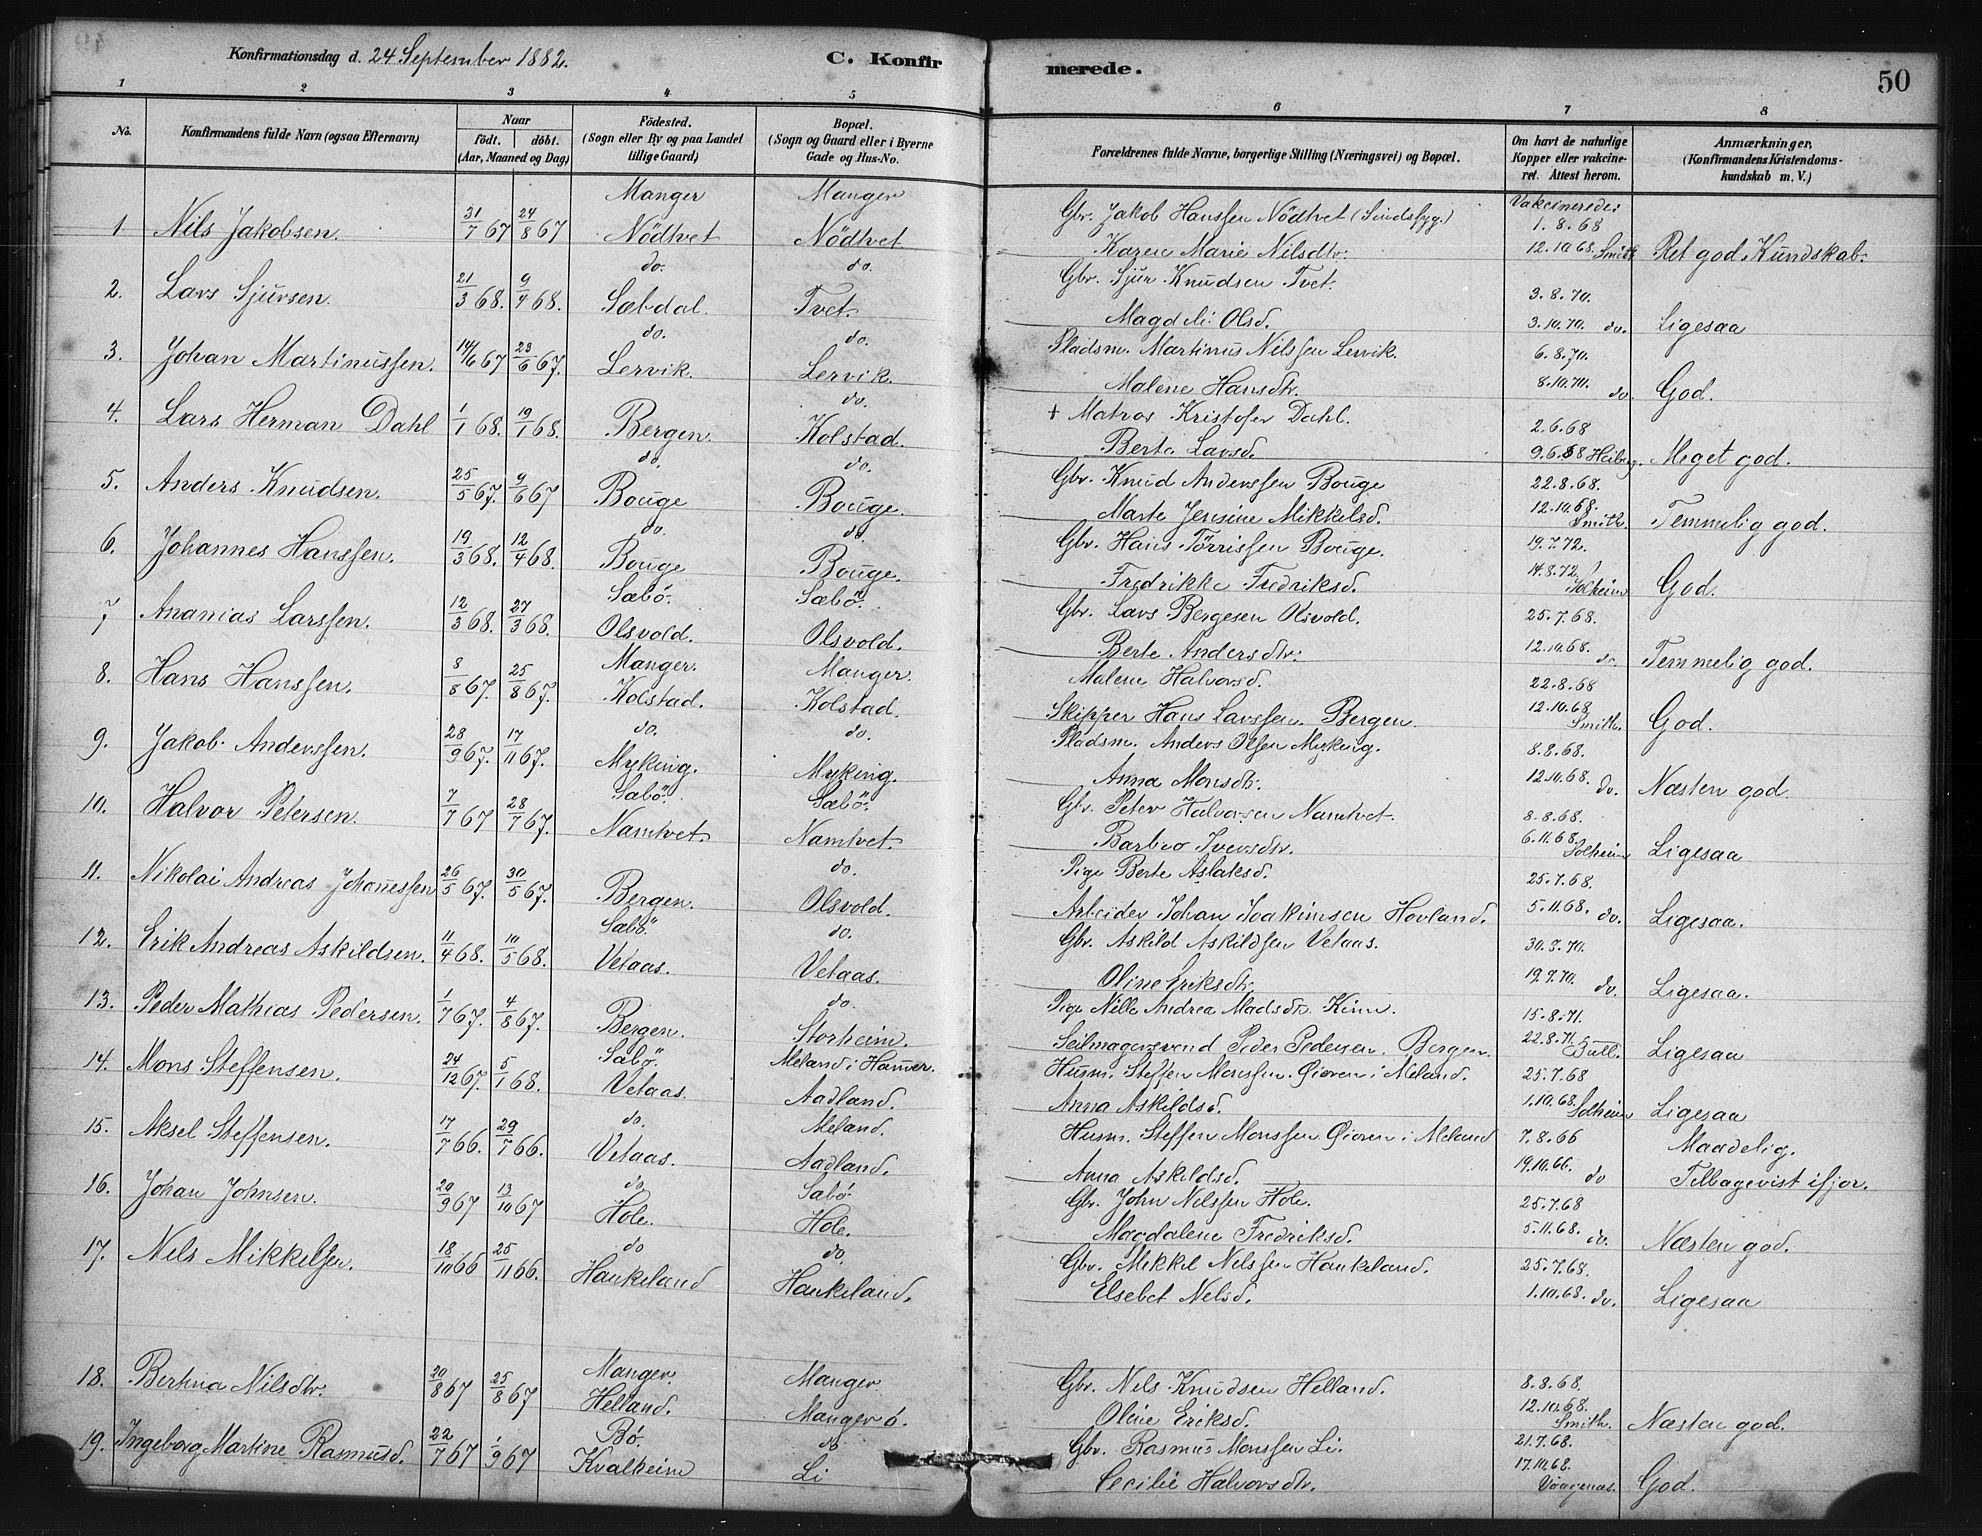 Konfirmationsdag d. 24 September 1882. C. Konfirmerede. 50
1 2 3 4 5 6 7 8
No. Konfirmandens fulde Navn (ogsaa Efternavn) Naar födt. döbt. (Aar, Maaned og Dag) Födested. (Sogn eller By og paa Landet tillige Gaard) Bopæl. (Sogn og Gaard eller i Byerne Gade og Hus-No. Forældrenes fulde Navne, borgerlige Stilling (Næringsvei) og Bopæl. Om havt de naturlige Kopper eller vakcineret. Attest herom. Anmærkninger, (Konfirmandens Kristendomskundskab m. V.)
Manger Manger Gbr. Jakob Hanssen Nödtvet (Sindssyg.) Vakcinerede: 1.8.68
1 Nils Jakobsen. 31/7 67 24/8 67 Nödtvet Nödtvet Karen Marie Nilsdtr. 12.10.68. Smith Ret god Kundskab.
do. do. Gbr. Sjur Knudsen Tvet. 3.8.70.
2. Lars Sjursen. 21/3 68. 9/4 68. Sæbdal. Tvet. Magdeli Olsd. 3.10.70. do. Ligesaa
do. do. Pladsm. Martinus Nilssen Lervik. 6.8.70.
3. Johan Martinussen. 14/6 67 23/6 67. Lervik. Lervik. Malene Hansdtr. 8.10.70. do. God.
do. + Matros Kristofer Dahl. 2.6.68
4. Lars Herman Dahl 1/1 68. 19/1 68. Bergen. Kolstad. Berte Larsd. 9.6.68 Heiberg. Meget god.
do. do. Gbr. Knud Anderssen Bouge 22.8.68.
5. Anders Knudsen. 25/5 67. 9/6 67 Bouge Bouge. Marte Jensine Mikkelsd. 12.10.68. Smith. Temmelig god.
do. do. Gbr. Hans Törrissen Bouge. 19.7.72.
6. Johannes Hanssen. 19/3 68. 12/4 68. Bouge Bouge. Fredrikke Fredriksd. 14.8.72. Solheim God.
Sæbö. Sæbö. Gbr. Lars Bergesen Olsvold. 25.7.68.
7 Ananias Larssen. 12/3 68. 27/3 68. Olsvold. Olsvold. Berte Andersdtr. 12.10.68. do. Temmelig god.
Manger. Manger. Malene Halvorsd. 22.8.68
8. Hans Hanssen. 8/8 67. 25/8 67. Kolstad. Kolstad. Skipper Hans Larssen. Bergen. 12.10.68. Smith. God.
do. do. Pladsm. Anders Olsen Myking. 8.8.68.
9. Jakob Anderssen. 28/9 67. 17/11 67. Myking. Myking. Anna Monsdtr. 12.10.68. do. Næsten god.
Sæbö. Sæbö. Gbr. Peter Halvorsen Namtvet. 8.8.68.
10. Halvor Petersen. 7/7 67 28/7 67. Namtvet. Namtvet. Barbro Iversdtr. 6.11.68. Solheim Ligesaa
do. Pige Berte Aslaksd. 25.7.68.
11. Nikolai Andreas Johanessen 26/5 67. 30/5 67. Bergen. Olsvold. Arbeider Johan Joakimsen Hovland. 5.11.68. do. Ligesaa.
Sæbö. do. Gbr. Askild Askildsen Vetaas. 30.8.70.
12. Erik Andreas Askildsen. 11/4 68. 10/5 68. Vetaas. Vetaas. Oline Eriksdtr. 19.9.70. do. Ligesaa.
do Pige Nille Andrea Madsdtr. Kinn. 15.8.71.
13. Peder Mathias Pedersen. 1/7 67. 4/8 67. Bergen. Storheim. Seilmagersvend Peder Pedersen. Bergen. 22.8.71. Ligesaa
Sæbö. Meland i Hamer. Husm. Steffen Monssen. Öioren i Meland. 25.7.68
14. Mons Steffensen. 24/12 67. 5/1 68. Vetaas. Aadland. Anna Askildsd. 1.10.68. Solheim Ligesaa
do. Meland. Husm. Steffen Monssen Öioren i Meland 7.8.66 Maadelig.
15. Aksel Steffensen. 17/7 66. 29/7 66. Vetaas. Aadland. Anna Askildsd. 19.10.66. do Tilbagevist ifjor.
do Sæbö Gbr. John Nilssen Hole. 25.7.68
16. Johan Johnsen. 20/9 67 13/10 67 Hole. Hole. Magdalene Fredriksd. 5.11.68. do. Næsten god.
do do. Gbr. Mikkel Nilssen Haukeland. 25.7.68.
17. Nils Mikkelsen. 18/10 66 25/11 66. Haukeland Haukeland. Elsebet Nelsd. 1.10.68. do. Ligesaa
Manger. Manger. Gbr. Nils Knudsen Helland. 8.8.68.
18. Bertina Nilsdtr. 20/8 67 25/8 67 Helland. Manger ö. Oline Eriksd. 12.10.68. Smith. Næsten god.
Bö. do Gbr. Rasmus Monssen Li. 21.7.68.
19. Ingeborg Martine Rasmusd. 22/7 67 1/9 67 Kvalheim Li Cecilie Halvorsdtr. 17.10.68. Vaagenæs. God.